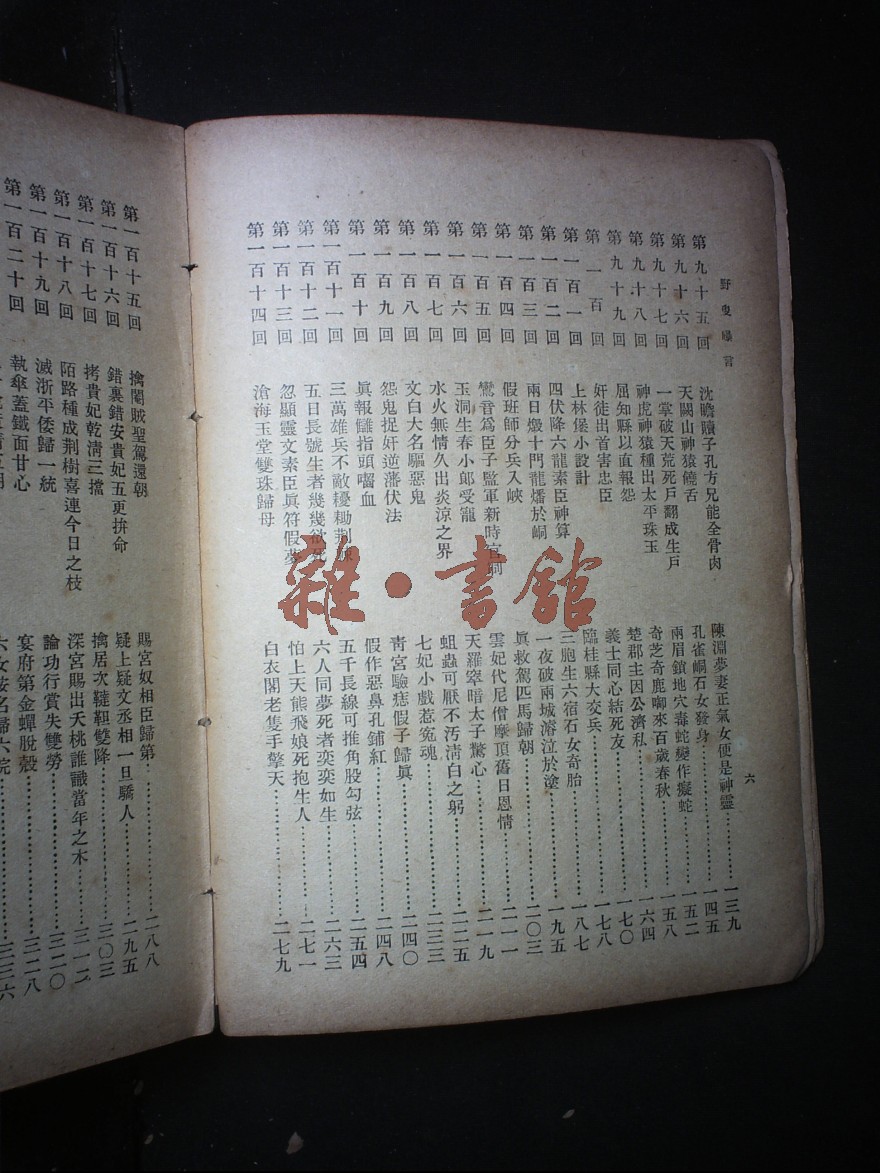 野叟曝言
六
第九十五回 沈瞻贖子孔方兄能全骨肉 陳淵夢妻正氣女便是神靈……一三九
第九十六回 天闕山神猿饒舌 孔雀峒石女發身……一四五
第九十七回 一掌破天荒死戶翻成生戶 兩眉鎖地穴毒蛇變作癡蛇……一五二
第九十八回 神虎神猿種出太平珠玉 奇芝奇鹿啣來百歲春秋……一五八
第九十九回 屈知縣以直報怨 楚郡主因公濟私……一六四
第一百回 奸徒出首害忠臣 義士同心結死友……一七〇
第一百一回 上林堡小設計 臨桂縣大交兵……一七八
第一百二回 四伏降六龍素臣神算 三胞生六宿石女奇胎……一八七
第一百三回 兩日燬十門龍燔於峒 一夜破兩城濬泣於塗……一九五
第一百四回 假班師分兵入峽 眞救駕匹馬歸朝……二〇三
第一百五回 鸞音爲臣子監軍新時官 雲妃代尼僧摩頂舊日恩情……二一一
第一百六回 玉洞生春小郎受寵 天羅窣暗太子驚心……二一九
第一百七回 水火無情久出炎涼之界 蛆蟲可厭不汚淸白之躬……二二五
第一百八回 文白大名驅惡鬼 七妃小戲惹寃魂……二三三
第一百九回 怨鬼捉奸逆藩伏法 靑宮驗痣假子歸眞……二四〇
第一百十回 眞報讎指頭囓血 假作惡鼻孔鋪紅……二四八
第一百十一回 三萬雄兵不敵耰耡荆 五千長線可推角股勾弦……二五四
第一百十二回 五日長號生者幾幾欲死 六人同夢死者奕奕如生……二六三
第一百十三回 忽顯靈文素臣眞符假夢 怕上天熊飛娘死抱生人……二七一
第一百十四回 滄海玉堂雙珠歸母 白衣閣老隻手擎天……二七九
第一百十五回 擒闖賊聖駕還朝 賜宮奴相臣歸第……二八八
第一百十六回 錯裏錯安貴妃五更拚命 疑上疑文丞相一旦驕人……二九五
第一百十七回 拷貴妃乾淸三擋 擒居次韃靼雙降……三〇三
第一百十八回 陌路種成荆樹喜連今日之枝 深宮賜出夭桃誰識當年之木……三一二
第一百十九回 滅浙平倭歸一統 論功行賞失雙勞……三二〇
第一百二十回 執傘蓋鐵面甘心 宴府第金蟬脫殼……三二八
六女按名歸六院……三三六
雜·書館